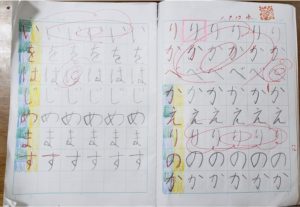 りりりりりり
かかかかかか
かかかかかか
ええええええ
りりりりりり
のののののの
かかかかかか
いいいいいい
をををををを
はははははは
じじじじじじ
めめめめめめ
まままままま
すすすすすす